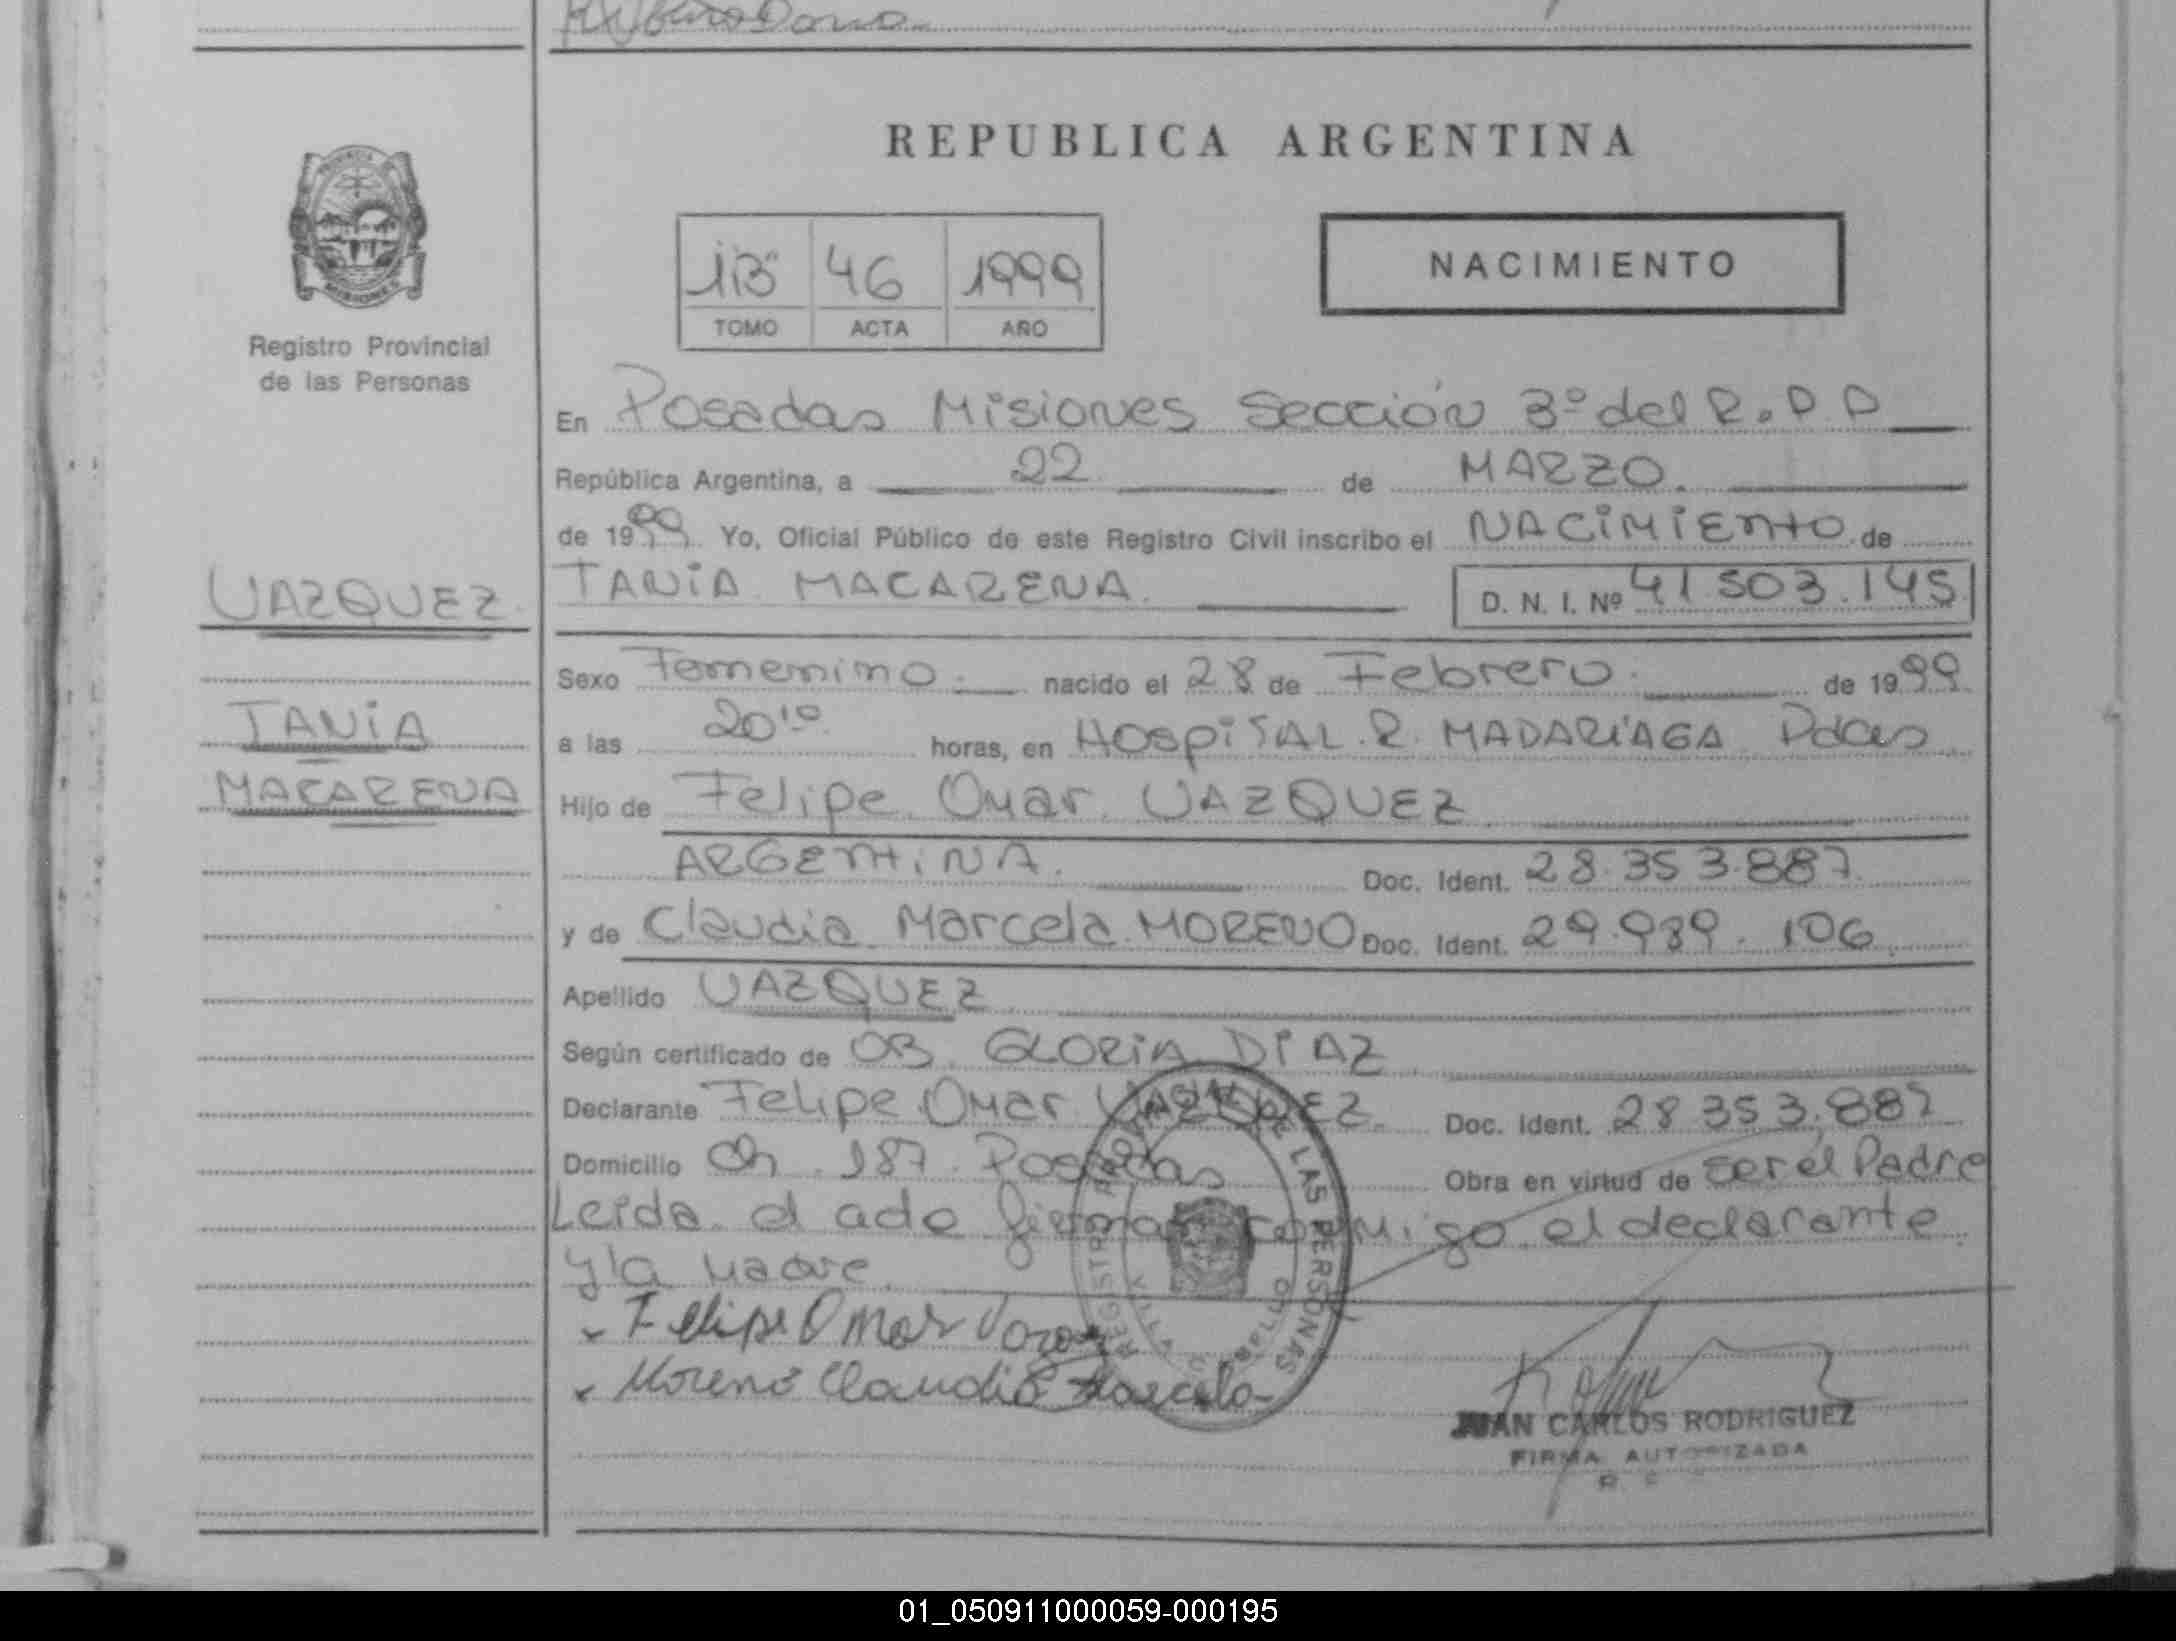 REPUBLICA ARGENTINA
PROVINCIA
MISIONES
Registro Provincial
de las Personas
1B° 46 1999
TOMO ACTA AÑO
NACIMIENTO
En Posadas Misiones Sección 3º del R.P.P
República Argentina, a 22 de MARZO.
de 1999 Yo, Oficial Público de este Registro Civil inscribo el NACIMIENTO de
VAZQUEZ
TANIA MACARENA. D. N. I. Nº 41.503.145
TANIA
MACARENA
Sexo Femenino. nacido el 28 de Febrero. de 1999
a las 20¹⁰ horas, en HOSPITAL R. MADARIAGA Pdas
Hijo de Felipe Omar VAZQUEZ
ARGENTINA. Doc. Ident. 28.353.887
y de Claudia Marcela MORENO Doc. Ident. 29.989.106
Apellido VAZQUEZ
Según certificado de OB. GLORIA DIAZ
Declarante Felipe Omar VAZQUEZ. Doc. Ident. 28.353.887
Domicilio Ch. 187. Posadas Obra en virtud de ser el Padre
Leida el acto firman conmigo el declarante
y la madre.
Felipe Omar
Moreno Claudia Marcela
REGISTRO PROVINCIAL DE LAS PERSONAS
VILLA URQUIZA
JUAN CARLOS RODRIGUEZ
FIRMA AUTORIZADA
01_050911000059-000195